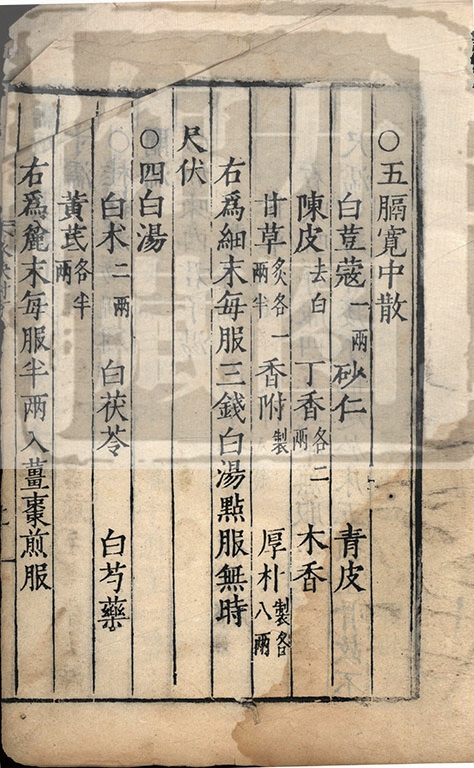 ○五膈寬中散
白荳蔻一兩 砂仁 青皮
陳皮去白 丁香各二兩 木香
甘草炙各一兩半 香附製 厚朴製各八兩
右爲細末每服三錢白湯點服無時
尺伏
○四白湯
白术二兩 白茯苓 白芍藥
黃芪各半兩
右爲麄末每服半兩入薑棗煎服